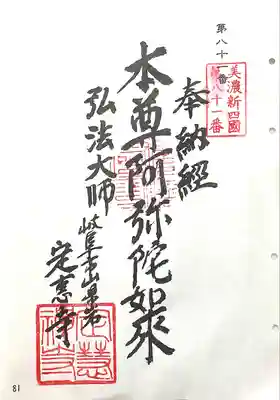 第八十一番
美濃新四國
第八十一番
奉納経
本尊阿弥陀如來
弘法大師
岐阜市山県岩
定恵寺
定慧禅寺
81